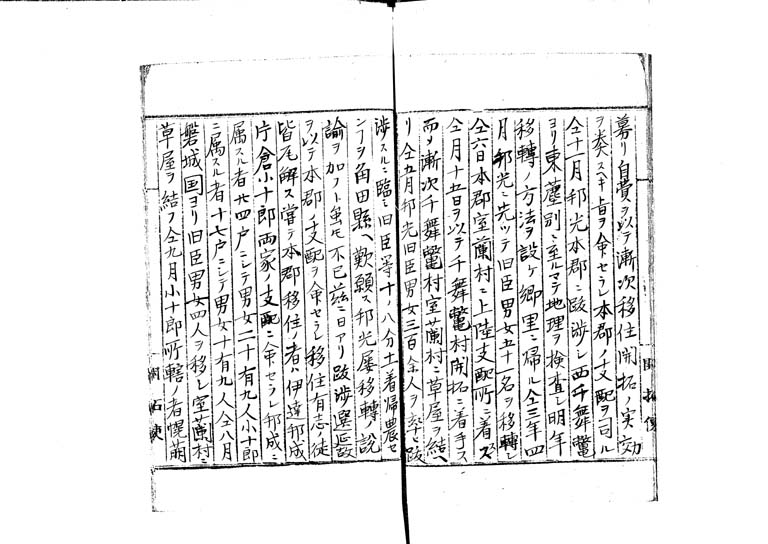 募リ自費ヲ以テ漸次移住開拓ノ実効
ヲ奏スヘキ旨ヲ命セラレ本郡ノ支配ヲ司ル
仝十一月邦光本郡ニ跋渉シ西千舞鼈
ヨリ東蘯別ニ至ルマテ地理ヲ検査シ明年
移轉ノ方法ヲ設ケ郷里ニ帰ル仝三年四
月邦光ニ先ツテ旧臣男女五十一名ヲ移轉シ
仝六日本郡室蘭村ニ上陸支配所ニ着ス
仝月十五日ヲ以テ千舞鼈村開拓ニ着手ス
而メ漸次千舞鼈村室蘭村ニ草屋ヲ結ヘ
リ仝五月邦光旧臣男女三百余人ヲ率ヒ跋
渉スルニ臨ミ旧臣等十ノ八分土着帰農セ
ンコヲ角田縣ヘ歎願ス邦光屡移轉ノ説
諭ヲ加フト虽モ不已茲ニ日アリ跋渉遷延
ヲ以テ本郡ノ支配ヲ命セラレ移住有志ノ徒
皆瓦解ス嘗テ本郡移住ノ者ハ伊達邦成
片倉小十郎両家ノ支配ニ命セラレ邦成ニ
属スル者廿四戸ニシテ男女二十有九人小十郎
ニ属スル者十七戸ニシテ男女十有九人仝八月
磐城国ヨリ旧臣男女四人ヲ移シ室蘭村ニ
草屋ヲ結フ仝九月小十郎所轄ノ者幌萠
開拓使
開拓使